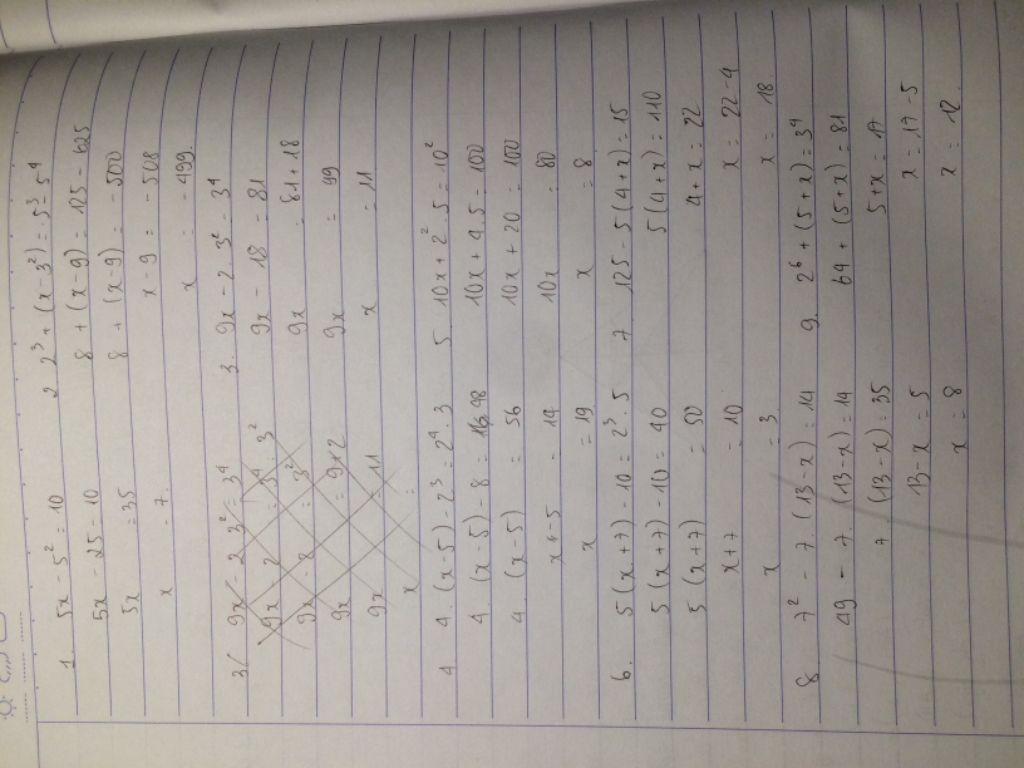 1. 5x - 5² = 10
5x - 25 = 10
5x = 35
x = 7.
2 2³ + (x - 3²) = 5³ - 5⁴
8 + (x - 9) = 125 - 625
8 + (x - 9) = - 500
x - 9 = - 508
x = - 499.
3/ 9x - 2 3² = 3⁴
9x - 2 = 3⁴ : 3²
9x - 2 = 3²
9x = 9+2
9x = 11
x =
3. 9x - 2. 3² = 3⁴
9x - 18 = 81
9x = 81 + 18
9x = 99
x = 11
4 4. (x - 5) - 2³ = 2⁴. 3
4 (x - 5) - 8 = 16 48
4. (x - 5) = 56
x - 5 = 14
x = 19
5 10x + 2². 5 = 10²
10x + 4. 5 = 100
10x + 20 = 100
10x = 80
x = 8
6. 5 (x + 7) - 10 = 2³. 5
5 (x + 7) - 10 = 40
5 (x + 7) = 50
x + 7 = 10
x = 3
7 125 - 5 (4 + x) = 15
5 (4 + x) = 110
4 + x = 22
x = 22 - 4
x = 18.
8 7² - 7. (13 - x) = 14
49 - 7. (13 - x) = 14
7. (13 - x) = 35
13 - x = 5
x = 8
9. 2⁶ + (5 + x) = 3⁴
64 + (5 + x) = 81
5 + x = 17
x = 17 - 5
x = 12.